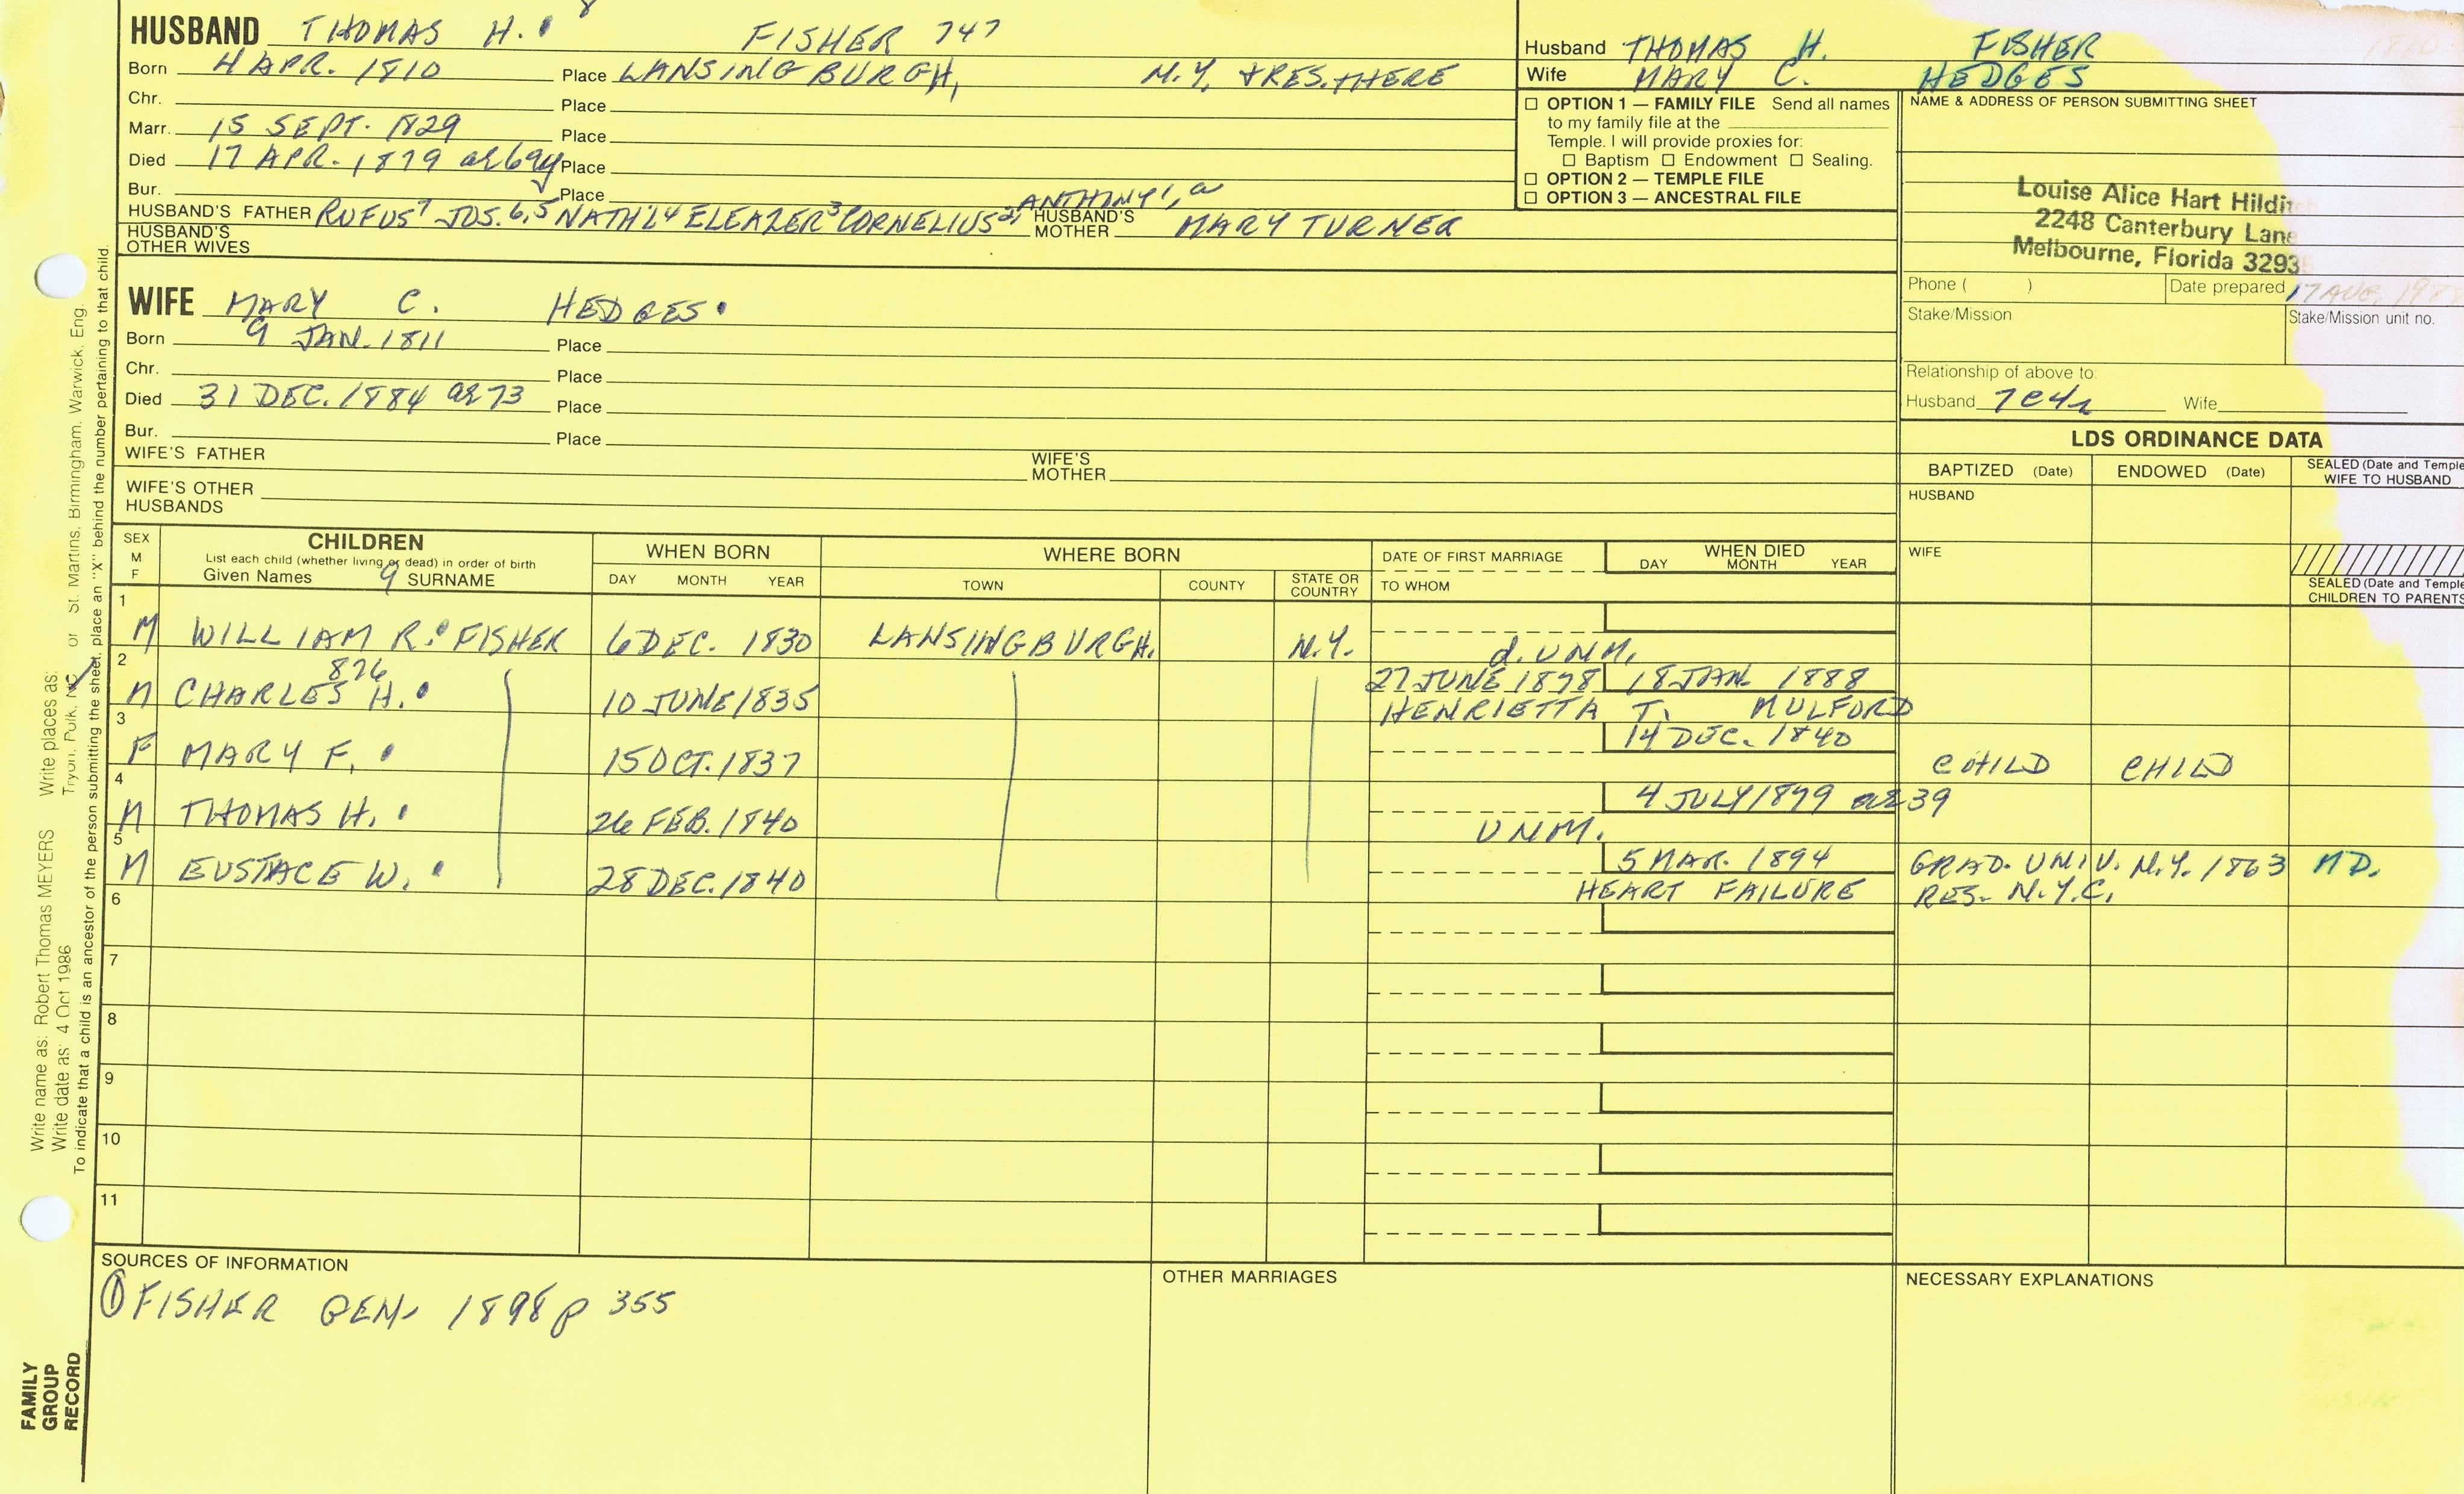 8
HUSBAND THOMAS H. FISHER 747
Born 4 APR. 1810 Place LANSINGBURGH, N.Y. + RES. THERE
Chr. Place
Marr. 15 SEPT. 1829 Place
Died 17 APR. 1879 ae 69y Place
Bur. Place
ANTHONY 1, a
HUSBAND'S FATHER RUFUS 7 JOS. 6,5 NATH'L 4 ELEAZER 3 CORNELIUS 2, HUSBAND'S MOTHER MARY TURNER
HUSBAND'S OTHER WIVES
Husband THOMAS H. FISHER
Wife MARY C. HEDGES
☐ OPTION 1 — FAMILY FILE Send all names
to my family file at the
Temple. I will provide proxies for:
☐ Baptism ☐ Endowment ☐ Sealing.
☐ OPTION 2 — TEMPLE FILE
☐ OPTION 3 — ANCESTRAL FILE
NAME & ADDRESS OF PERSON SUBMITTING SHEET
Louise Alice Hart Hildit
2248 Canterbury Lane
Melbourne, Florida 3293
Phone ( ) Date prepared 17 AUG. 198
Stake/Mission Stake/Mission unit no.
Relationship of above to:
Husband 7c4r Wife
WIFE MARY C. HEDGES
Born 9 JAN. 1811 Place
Chr. Place
Died 31 DEC. 1884 ae 73 Place
Bur. Place
WIFE'S FATHER WIFE'S MOTHER
WIFE'S OTHER HUSBANDS
LDS ORDINANCE DATA
BAPTIZED (Date) ENDOWED (Date) SEALED (Date and Temple
WIFE TO HUSBAND
HUSBAND
WIFE
SEALED (Date and Temple
CHILDREN TO PARENTS
SEX M F
CHILDREN
List each child (whether living or dead) in order of birth
Given Names 9 SURNAME
WHEN BORN
DAY MONTH YEAR
WHERE BORN
TOWN COUNTY STATE OR COUNTRY
DATE OF FIRST MARRIAGE
TO WHOM
WHEN DIED
DAY MONTH YEAR
1
M WILLIAM R. FISHER 6 DEC. 1830 LANSINGBURGH. N.Y. d. UNM.
2
826
M CHARLES H. 10 JUNE 1835 27 JUNE 1878 18 JAN. 1888
HENRIETTA T. MULFORD
3
F MARY F. 15 OCT. 1837 14 DEC. 1840 CHILD CHILD
4
M THOMAS H. 26 FEB. 1840 4 JULY 1879 ae 39
UNM.
5
M EUSTACE W. 28 DEC. 1840 5 MAR. 1894 GRAD. UNIV. N.Y. 1863 MD.
HEART FAILURE RES. N.Y.C.
6
7
8
9
10
11
SOURCES OF INFORMATION
① FISHER GEN. 1898 p 355
OTHER MARRIAGES
NECESSARY EXPLANATIONS
Write name as: Robert Thomas MEYERS Write places as: Tryon, Polk, NC or St. Martins, Birmingham, Warwick, Eng.
Write date as: 4 Oct 1986
To indicate that a child is an ancestor of the person submitting the sheet, place an "X" behind the number pertaining to that child.
FAMILY
GROUP
RECORD